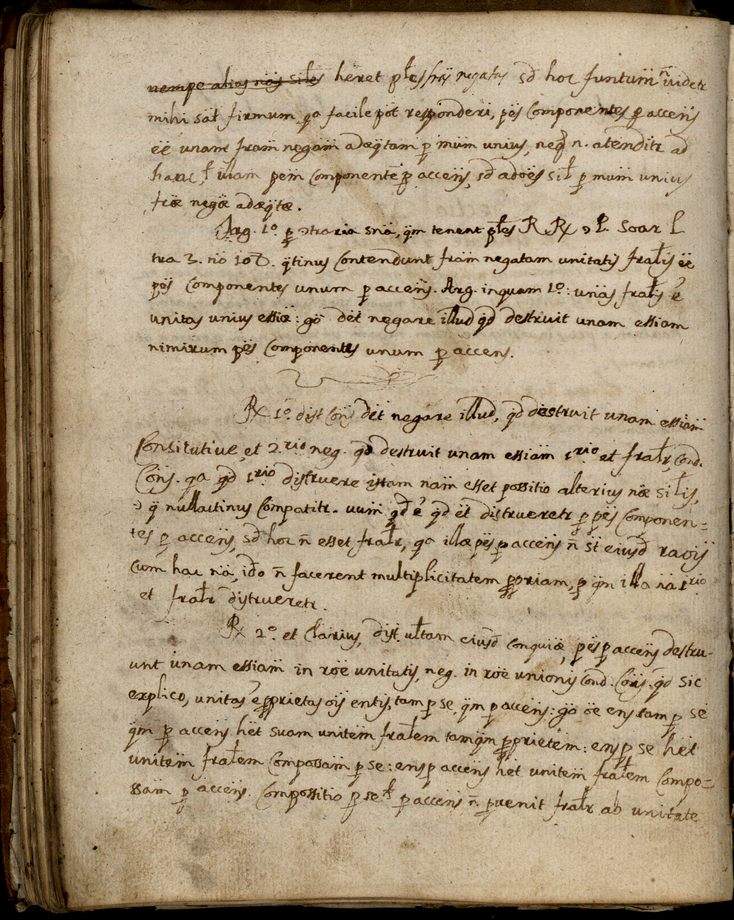 nempe alias nõs siles hẽret ples frijs negatis sd hoc funtum ṽidetr
mihi sat firmum, qa facile pot responderi, pẽs componentes p accens
ẽe unam fram negam adæqtam p mum unius, neq n. atenditr ad
hanc, l ullam pem componentẽ p accens, sd ad oẽs sil p mum unius
fræ negæ adæqtæ.
Arg. 1o. p ɔtraria snã, qm tenent ples R R. ɔ P. Soar l.
tra 3. nõ 108. qtinus contendunt fram negatam unitatis fralis ẽe
pẽs componentes unum p accens. Arg. inquam 1o: unãs fralis ẽ
unitas unius essiæ: go dẽt negare illud qd destruit unam essiam
nimirum pẽs componentes unum p accens.
R. 1o. dist Cons dẽt negare illud, qd destruit unam essiam
Consitutive, et 2.rio neg. qd destruit unam essiam 1rio et fralr, cond.
Cons. qa qd 1rio distruere istam nam esset possitio alterius næ silis,
ɔ q nullatinus compatitr. uum qd ẽ qd ẽt distrueretr p pẽs componen=
tes p accens, sd hoc ñ esset fralr, qa illæ pẽs p accens ñ st eiusd raõis
cum hac nã, ido ñ facerent multiplicitatem ppriam, p qm illa nã 1rio
et fralr distrueretr.
R. 2o. et clarius, dist. ultam eiusd conquiæ, pẽs p accens destru-
unt unam essiam in roẽ unitatis, neg. in roẽ unionis cond. Cons. qd sic
explico, unitas ẽ pprietas oĩs entis, tam p se qm p accens: go oẽ ens tam p se
qm p accens hẽt suam unitem fralem tamqm pprietem: ens p se hẽt
unitem fralem compossam p se: ens p accens hẽt unitem fralem compo=
ssam p accens. Compossitio p se l p accens ñ pvenit fralr ab unitate